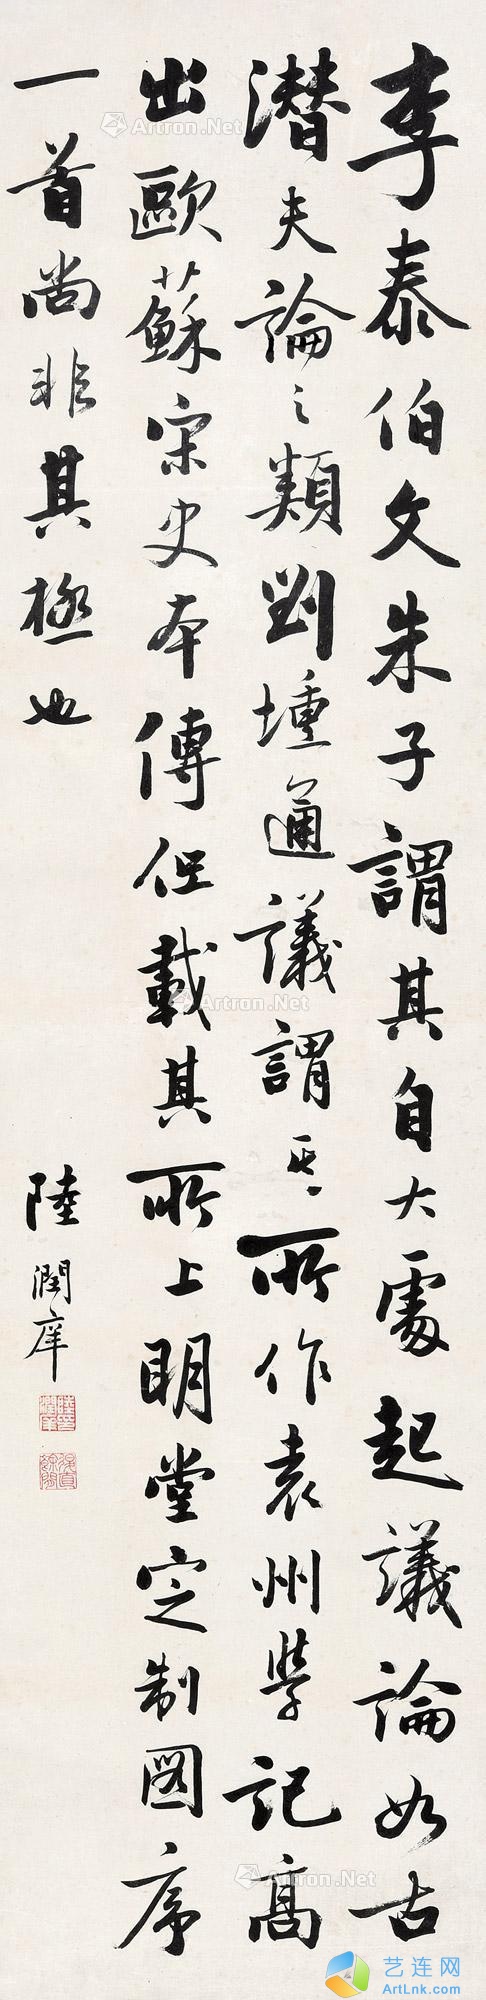 李泰伯文朱子謂其自大處起議論如古
潜夫論之類劉壎通議謂其所作袁州學記高
出歐蘇宋史本傳但載其所上明堂定制圖序
一首尚非其極也
陸潤庠
Artron.Net
Artron.Net
Artron.Net
Artron.Net
Artron.Net
Artron.Net
艺连网
ArtLnk.com